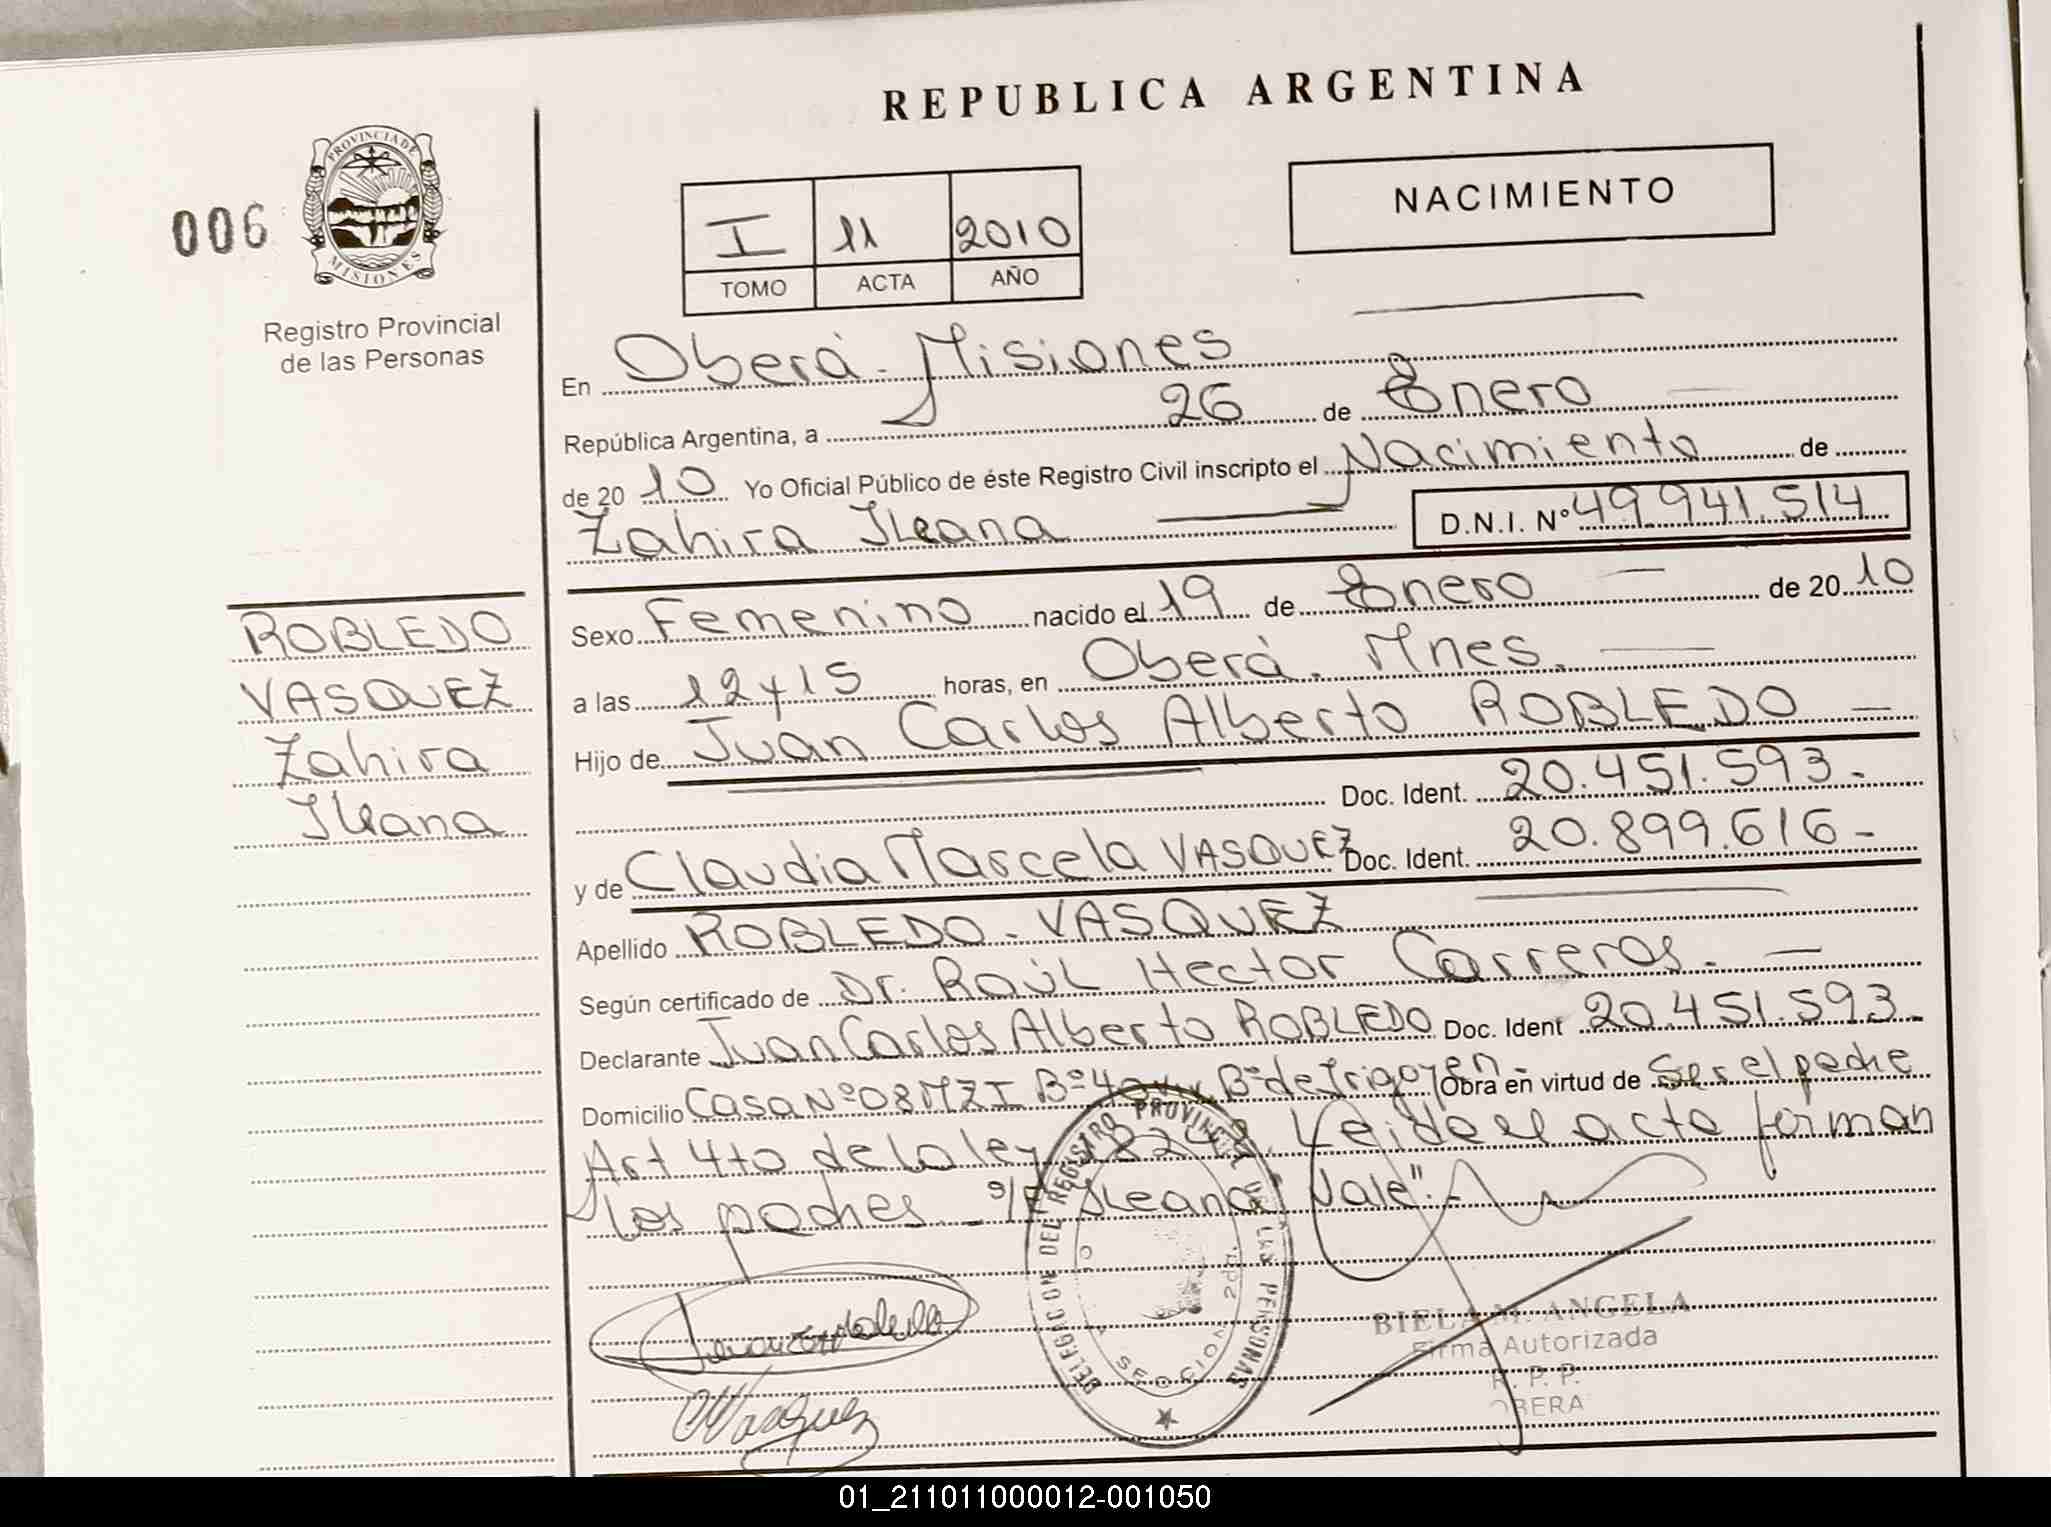 REPUBLICA ARGENTINA
006
PROVINCIA DE MISIONES
Registro Provincial
de las Personas
I 11 2010
TOMO ACTA AÑO
NACIMIENTO
En Oberá - Misiones
República Argentina, a 26 de Enero
de 20 10 Yo Oficial Público de éste Registro Civil inscripto el Nacimiento de
Zahira Ileana D.N.I. Nº 49.941.514
ROBLEDO
VASQUEZ
Zahira
Ileana
Sexo Femenino nacido el 19 de Enero de 20 10
a las 12 y 15 horas, en Oberá. Mnes.
Hijo de Juan Carlos Alberto ROBLEDO
Doc. Ident. 20.451.593-
y de Claudia Marcela VASQUEZ Doc. Ident. 20.899.616-
Apellido ROBLEDO - VASQUEZ
Según certificado de Dr. Raúl Hector Carreras.
Declarante Juan Carlos Alberto ROBLEDO Doc. Ident 20.451.593-
Domicilio Casa Nº 08 MZ I Bº 40 Bº de Irigoyen - Obra en virtud de Ser el padre
Art 4to de la ley 18248. Leida el acta firman
los padres - s/r "Ileana" Vale".-
DELEGACION DEL REGISTRO PROVINCIAL DE LAS PERSONAS
SECCION 2da.
Vasquez
BIELA M. ANGELA
Firma Autorizada
R. P. P.
OBERA
01_211011000012-001050